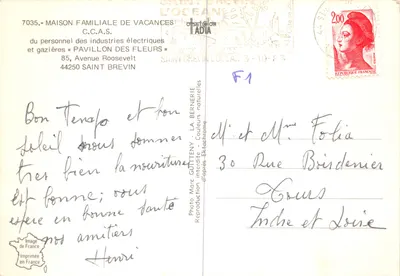 7035.- MAISON FAMILIALE DE VACANCES
C.C.A.S.
du personnel des industries électriques
et gazières « PAVILLON DES FLEURS »
85, Avenue Roosevelt
44250 SAINT BREVIN
création
TADIA
L'OCÉAN
2,00
F1
Bon Temps et bon
soleil nous sommes
tres bien la nourriture
est bonne, vous
espere en bonne santé
nos amitiers
Henri
Photo Marc GUITTENY - LA BERNERIE
Reproduction interdite - Couleurs naturelles
M et Mme Folia
30 Rue Boisdenier
Tours
Indre et Loire
Image
de France
Imprimée
en France